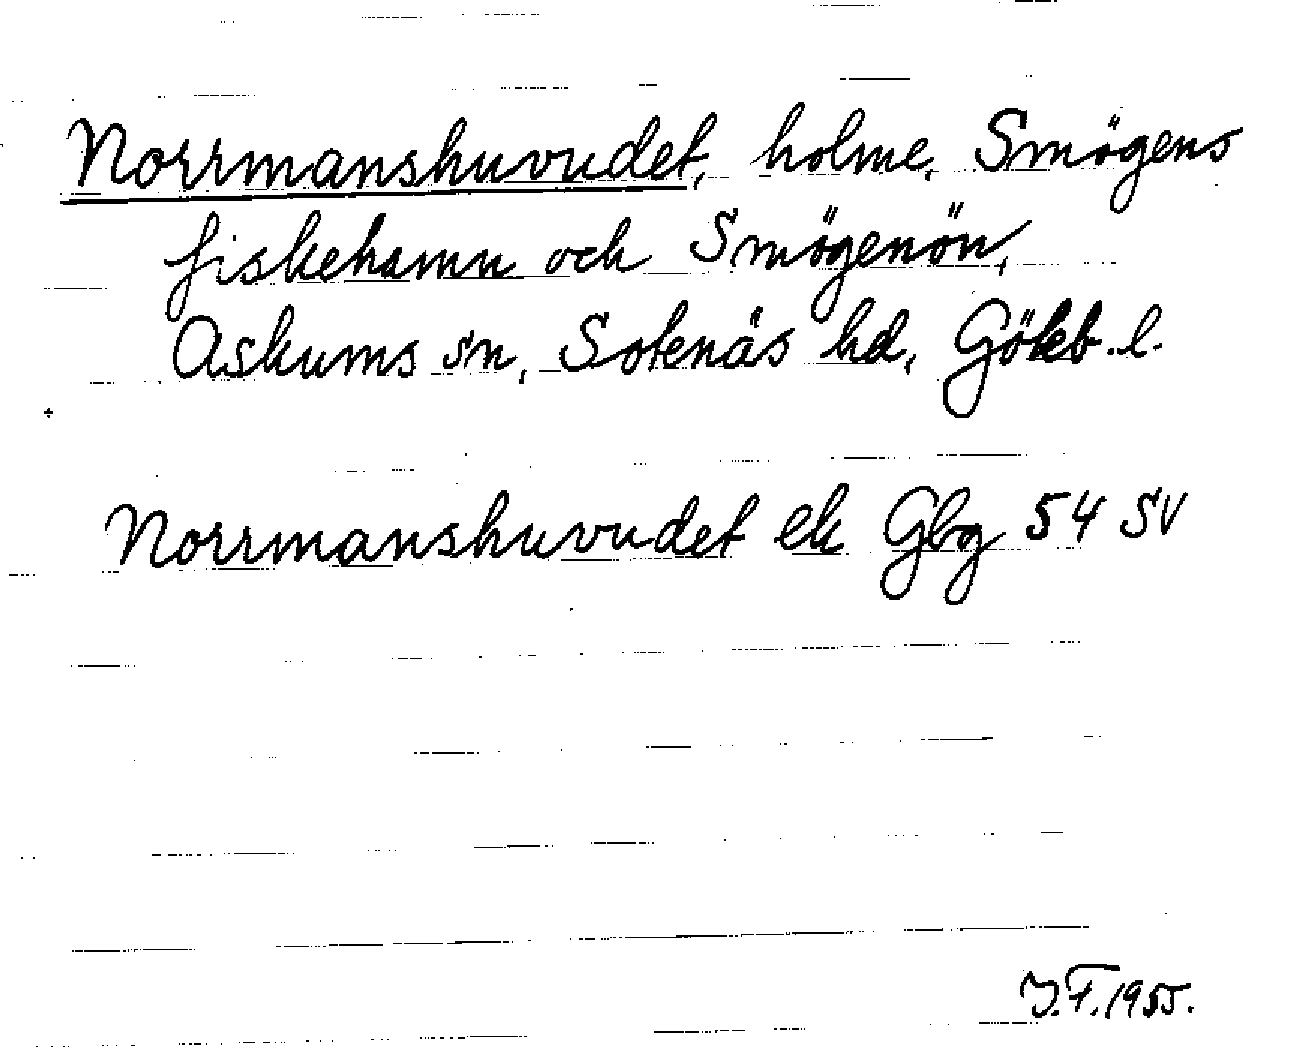 Norrmanshuvudet, holme, Smögens
fiskehamn och Smögenön,
Askums sn, Sotenäs hd, Göteb. l.
Norrmanshuvudet ek Gbg 54 SV
J.F. 1955.